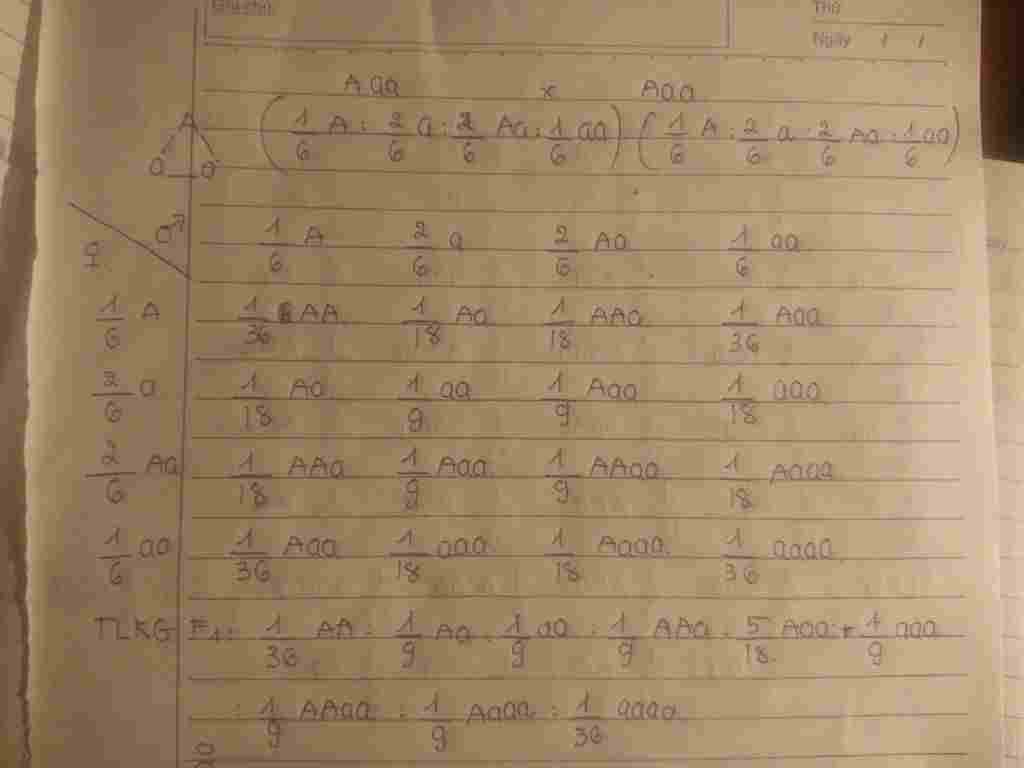 Thứ
Ngày / /
Aaa x Aaa
A
a a
(1/6 A : 2/6 a : 2/6 Aa : 1/6 aa) (1/6 A : 2/6 a : 2/6 Aa : 1/6 aa)
♀ ♂ 1/6 A 2/6 a 2/6 Aa 1/6 aa
1/6 A 1/36 AA 1/18 Aa 1/18 AAa 1/36 Aaa
2/6 a 1/18 Aa 1/9 aa 1/9 Aaa 1/18 aaa
2/6 Aa 1/18 AAa 1/9 Aaa 1/9 AAaa 1/18 Aaaa
1/6 aa 1/36 Aaa 1/18 aaa 1/18 Aaaa 1/36 aaaa
TLKG F1: 1/36 AA : 1/9 Aa : 1/9 aa : 1/9 AAa : 5/18 Aaa : 1/9 aaa
: 1/9 AAaa : 1/9 Aaaa : 1/36 aaaa